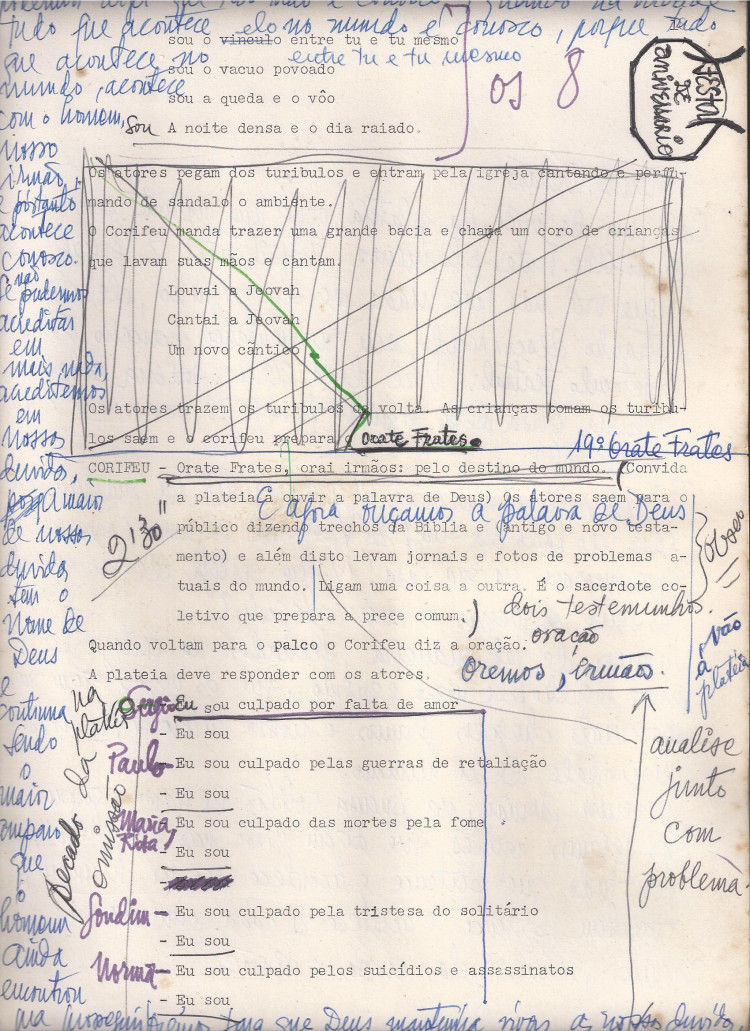 tudo que acontece elo no mundo é conosco, porque tudo
sou o vinculo entre tu e tu mesmo
que acontece no
entre tu e tu mesmo
sou o vacuo povoado
mundo, acontece
sou a queda e o vôo
os 8
FESTA DE ANIVERSARIO
com o homem,
Sou A noite densa e o dia raiado.
nosso
irmão,
e portanto
acontece
conosco.
não
Se pudermos
acreditar
em
mais nada,
acreditemos
em
nossas
duvidas,
de nossas
duvidas
tem o
Nome De
Deus
e
continua
sendo
o
maior
amparo
que
o
homem
ainda
encontrou
Os atores pegam dos turibulos e entram pela igreja cantando e perfu-
mando de sandalo o ambiente.
O Corifeu manda trazer uma grande bacia e chama um coro de crianças
que lavam suas mãos e cantam.
Louvai a Jeovah
Cantai a Jeovah
Um novo cantico
Os atores trazem os turibulos de volta. As crianças tomam os turibu-
los saem e o corifeu prepara o Orate Frates.
19º Orate Frates
CORIFEU - Orate Frates, orai irmãos: pelo destino do mundo. (Convida
a plateia a ouvir a palavra de Deus) Os atores saem para o
E agora ouçamos a palavra de Deus
2'30"
público dizendo trechos da Biblia e (antigo e novo testa-
mento) e além disto levam jornais e fotos de problemas a-
tuais do mundo. Ligam uma coisa a outra. É o sacerdote co-
letivo que prepara a prece comum.) dois testemunhos.
Quando voltam para o palco o Corifeu diz a oração. oração
A plateia deve responder com os atores. Oremos, irmãos.
vão à plateia
na plateia
Pecado da omissão
Sergio Eu sou culpado por falta de amor
- Eu sou
Paulo - Eu sou culpado pelas guerras de retaliação
- Eu sou
Maria Rita, Eu sou culpado das mortes pela fome
- Eu sou
Jondim - Eu sou culpado pela tristesa do solitário
- Eu sou
Norma - Eu sou culpado pelos suicídios e assassinatos
- Eu sou
analise
junto
com
problema.
para que Deus mantenha vivas as nossas duvidas